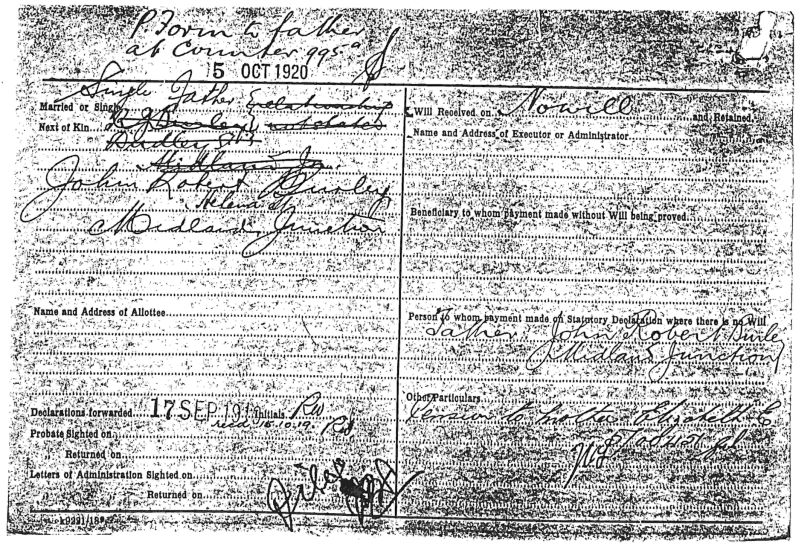 P. Form to father
at Counter
5 OCT 1920
Single Father relationship
Married or Single
not stated
Next of Kin
Dudley St
Midland Jn.
John Robert Burley
Helena St
Midland Junction
Name and Address of Allottee
Declarations forwarded 17 SEP 191 Initials RW
recd 15.10.19.
Probate Sighted on
Returned on
Letters of Administration Sighted on
Returned on
Will Received on No will and Retained.
Name and Address of Executor or Administrator
Beneficiary to whom payment made without Will being proved
Person to whom payment made on Statutory Declaration where there is no Will
Father John Robert Burley
Midland Junction
Other Particulars
Pension to mother Elizabeth E